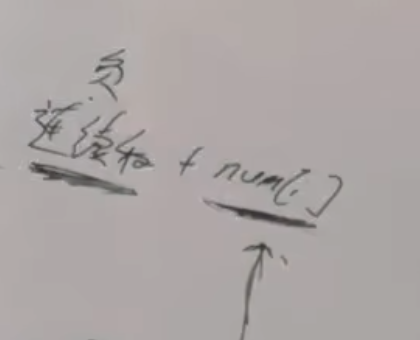 负
连续和 + num[i]